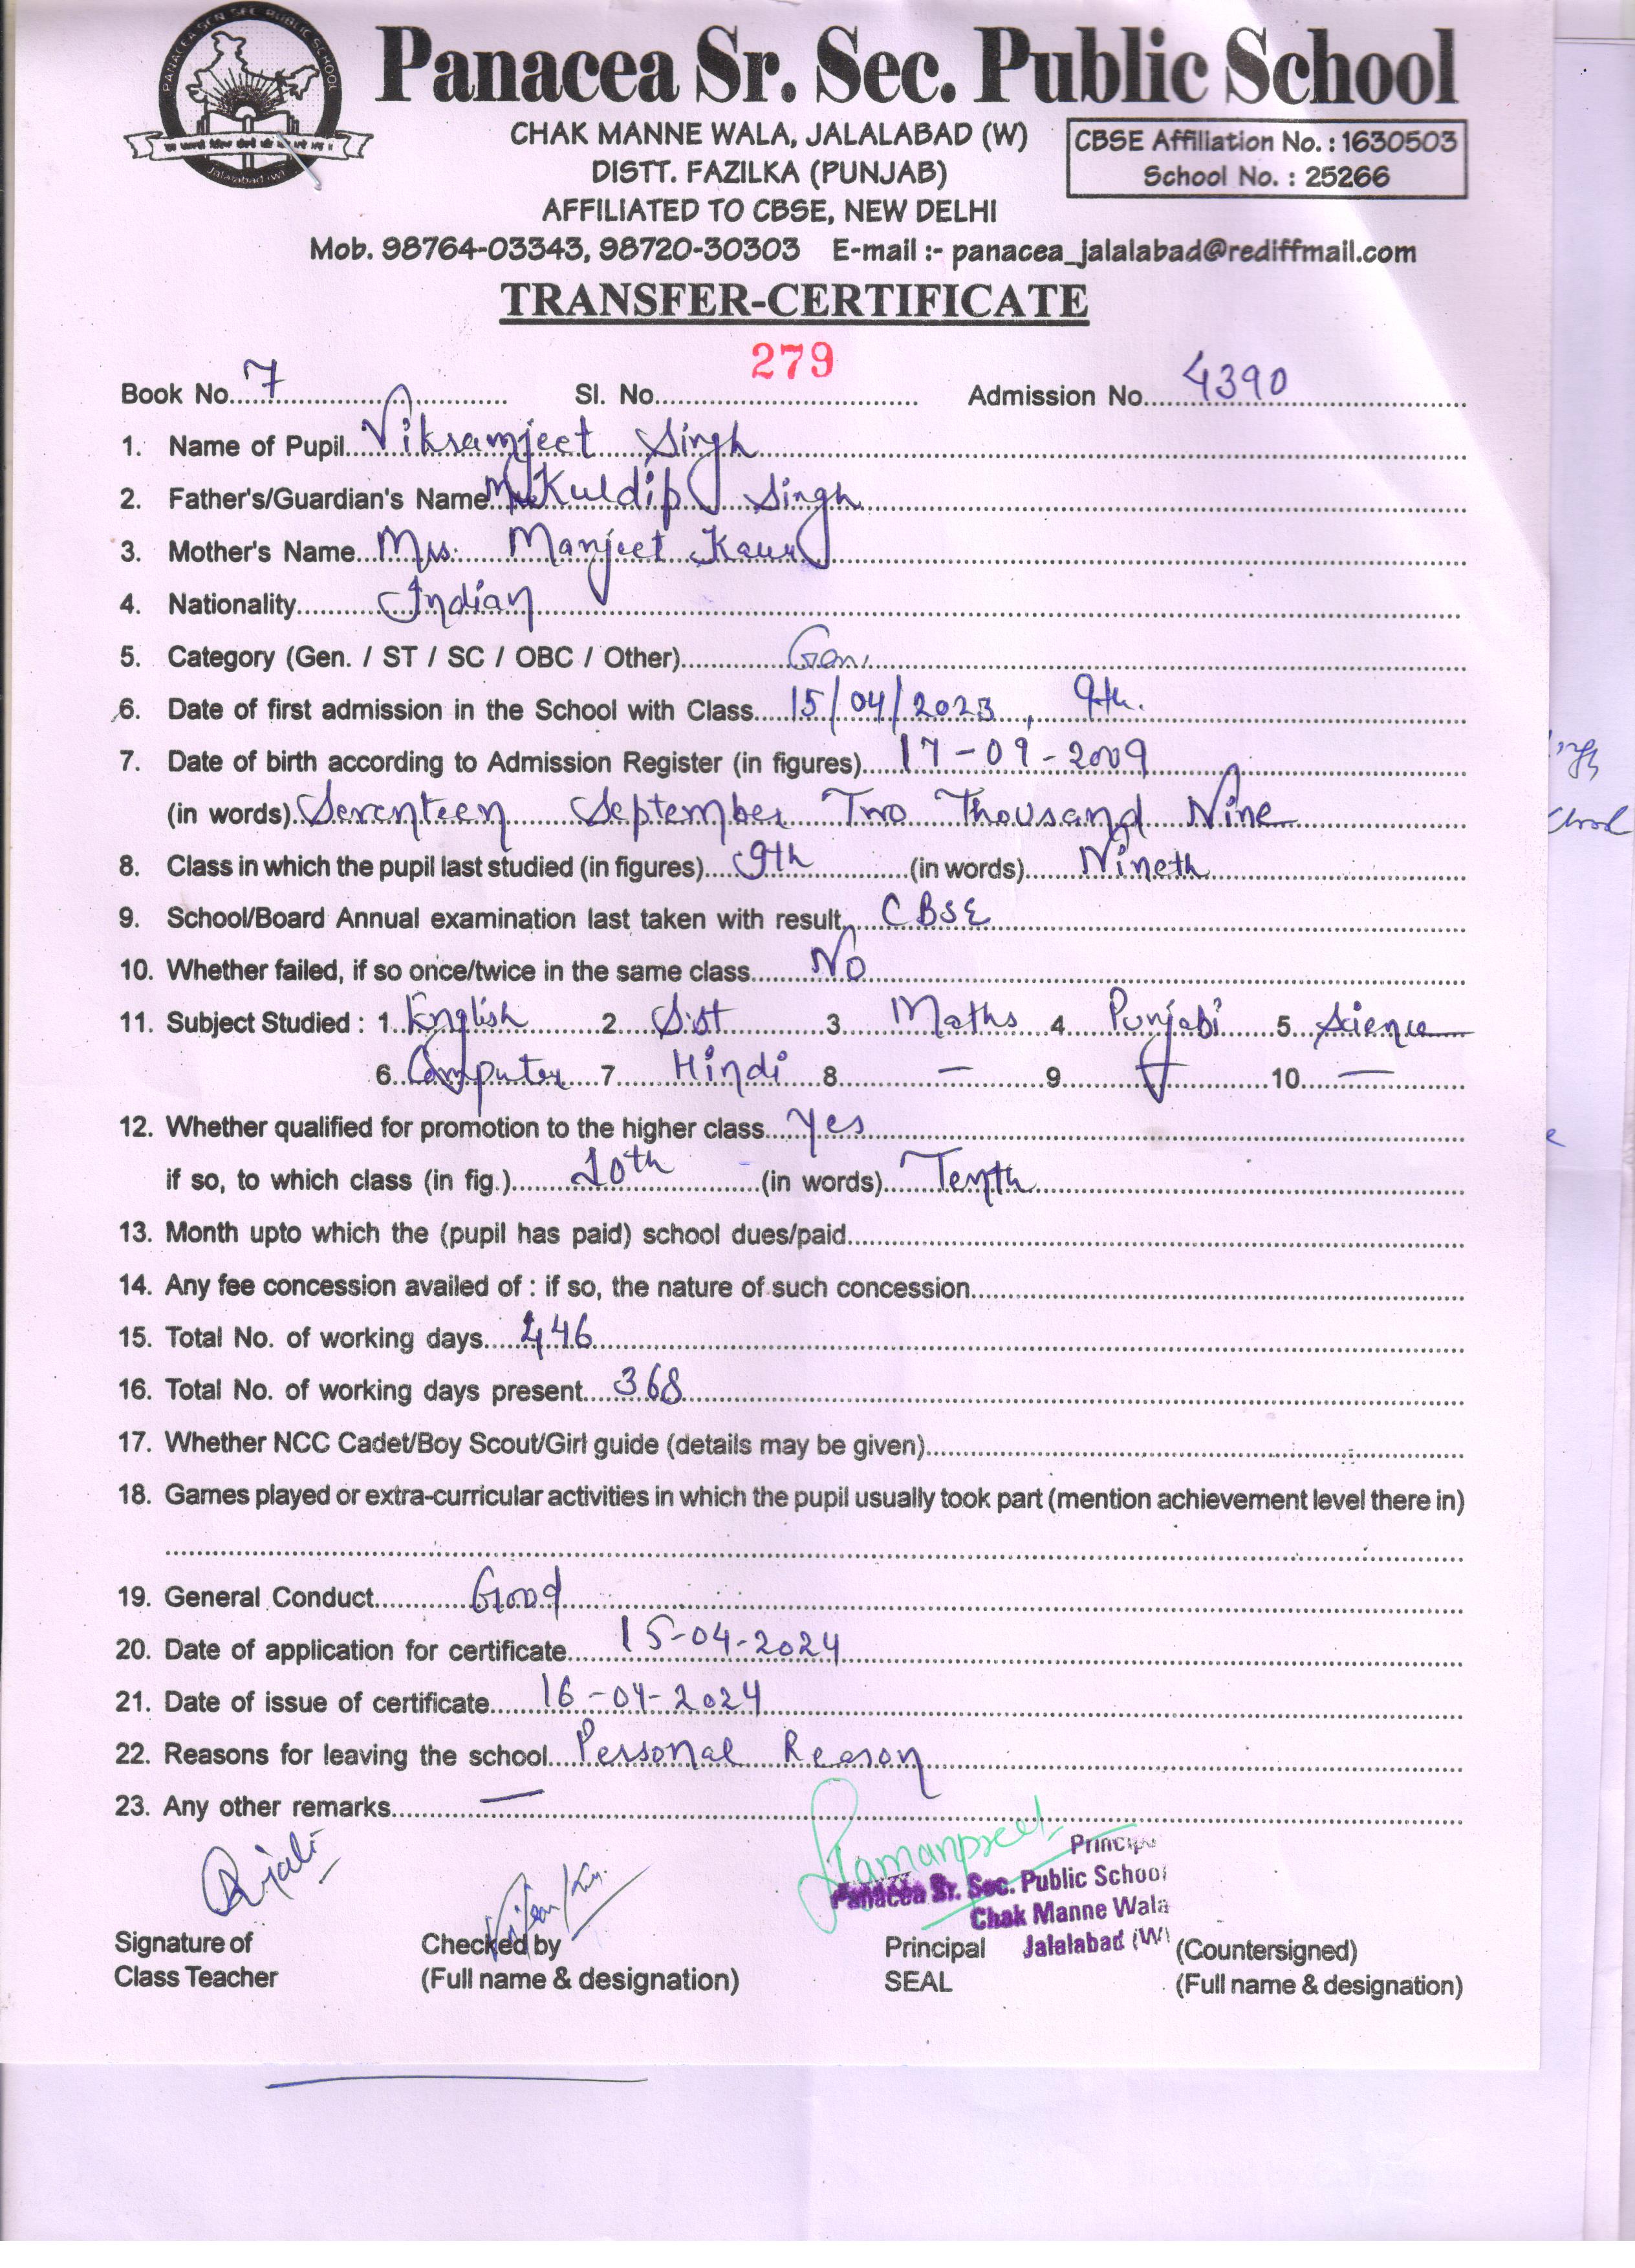 PANACEA SEN SEC PUBLIC SCHOOL
Jalalabad (W)
Panacea Sr. Sec. Public School
CHAK MANNE WALA, JALALABAD (W)
DISTT. FAZILKA (PUNJAB)
AFFILIATED TO CBSE, NEW DELHI
CBSE Affiliation No. : 1630503
School No. : 25266
Mob. 98764-03343, 98720-30303 E-mail :- panacea_jalalabad@rediffmail.com
TRANSFER-CERTIFICATE
Book No. 7 Sl. No. 279 Admission No. 4390
1. Name of Pupil Vikramjeet Singh
2. Father's/Guardian's Name Mr. Kuldip Singh
3. Mother's Name Mrs. Manjeet Kaur
4. Nationality Indian
5. Category (Gen. / ST / SC / OBC / Other) Gen.
6. Date of first admission in the School with Class 15/04/2023, 9th.
7. Date of birth according to Admission Register (in figures) 17-09-2009
(in words) Seventeen September Two Thousand Nine
8. Class in which the pupil last studied (in figures) 9th (in words) Nineth
9. School/Board Annual examination last taken with result CBSE
10. Whether failed, if so once/twice in the same class No
11. Subject Studied : 1 English 2 S.st 3 Maths 4 Punjabi 5 Science
6 Computer 7 Hindi 8 — 9 — 10 —
12. Whether qualified for promotion to the higher class Yes
if so, to which class (in fig.) 10th (in words) Tenth
13. Month upto which the (pupil has paid) school dues/paid
14. Any fee concession availed of : if so, the nature of such concession
15. Total No. of working days 446
16. Total No. of working days present 368
17. Whether NCC Cadet/Boy Scout/Girl guide (details may be given)
18. Games played or extra-curricular activities in which the pupil usually took part (mention achievement level there in)
19. General Conduct Good
20. Date of application for certificate 15-04-2024
21. Date of issue of certificate 16-04-2024
22. Reasons for leaving the school Personal Reason
23. Any other remarks —
Ramanpreet
Principal
Panacea Sr. Sec. Public School
Chak Manne Wala
Jalalabad (W)
Signature of Checked by Principal (Countersigned)
Class Teacher (Full name & designation) SEAL (Full name & designation)